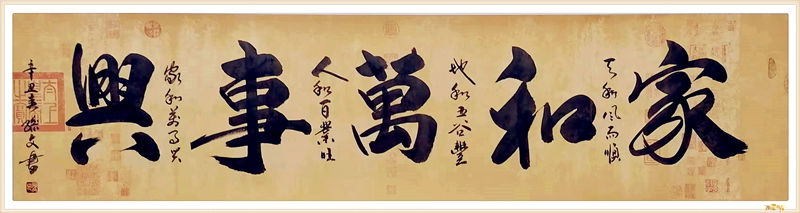 家和萬事興
天和风雨順
地和五谷豐
人和百業旺
家和万事兴
辛丑春孫文書